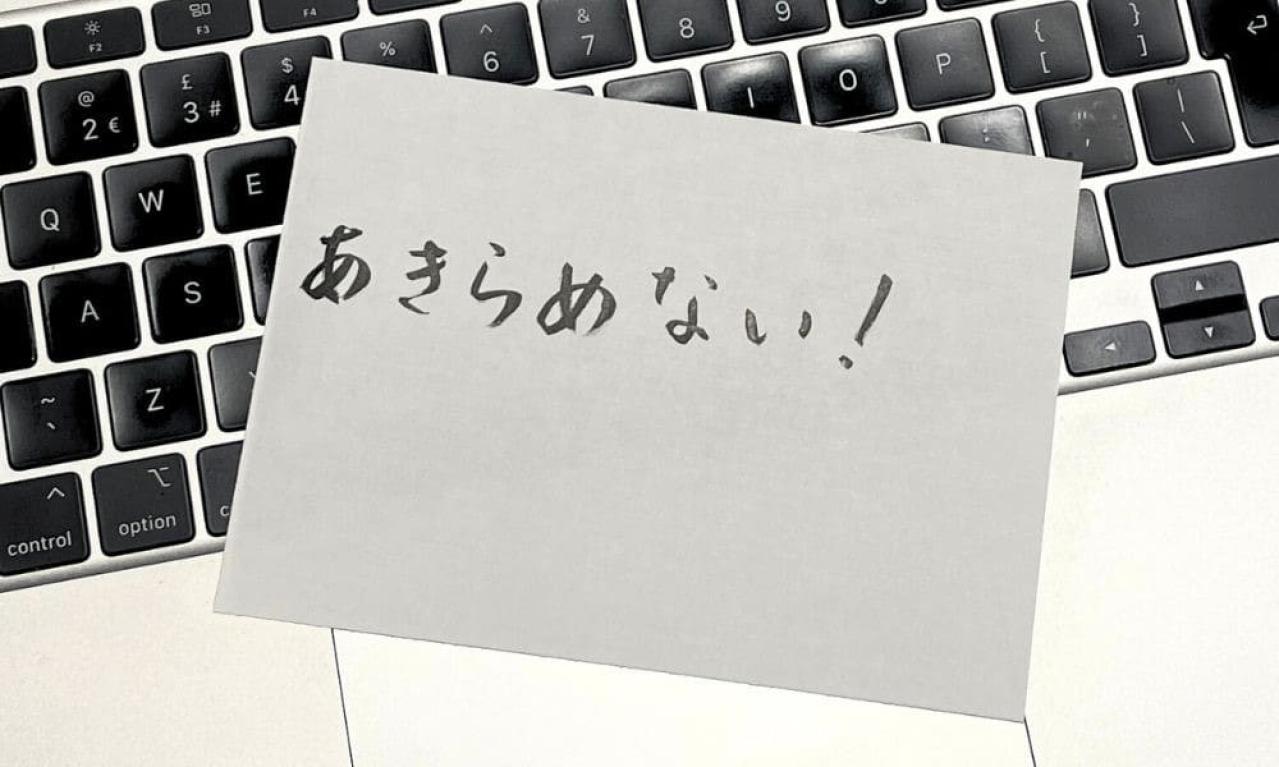 F2
F3
F4
@
2 €
£
3 #
$
4
%
^
6
&
7
8
9
Q
W
E
I
O
P
{
[
}
]
A
S
:
;
"
'
|
\
~
`
Z
^
control
option
c
あきらめない!